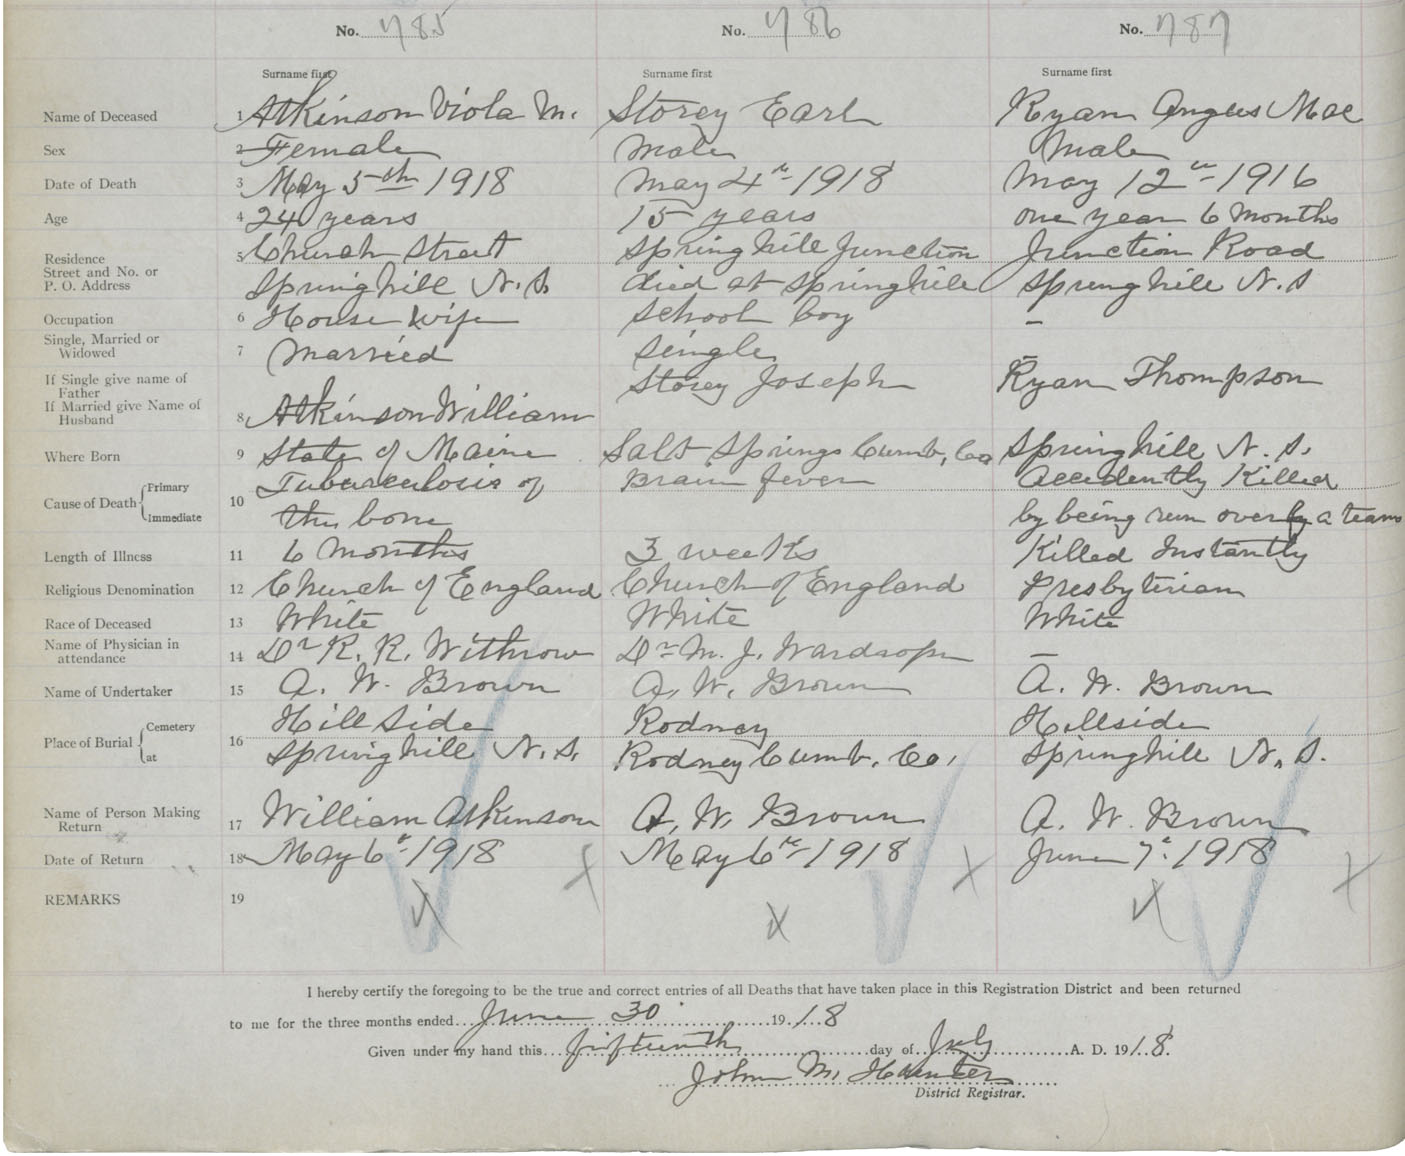 No. 785 No. 786 No. 787
Surname first Surname first Surname first
Name of Deceased 1 Atkinson Viola M. Storey Earl Ryan Angus Mac
Sex 2 Female Male Male
Date of Death 3 May 5th 1918 May 4th 1918 May 12th 1916
Age 4 24 years 15 years one year 6 months
Residence 5 Church Street Springhill Junction Junction Road
Street and No. or
P. O. Address Springhill N.S. died at Springhill Springhill N.S
Occupation 6 House wife School boy –
Single, Married or
Widowed 7 Married Single –
If Single give name of
Father Storey Joseph Ryan Thompson
If Married give Name of
Husband 8 Atkinson William
Where Born 9 State of Maine Salt Springs Cumb, Co Springhill N. S.
Cause of Death Primary 10 Tuburculosis of Brain fever Accidently Killed
Immediate the bone by being run over by a team
Length of Illness 11 6 Months 3 weeks Killed Instantly
Religious Denomination 12 Church of England Church of England Presbyterian
Race of Deceased 13 White White White
Name of Physician in
attendance 14 Dr R. R. Withrow Dr M. J. Wardrope –
Name of Undertaker 15 A. W. Brown A. W. Brown A. W. Brown
Place of Burial Cemetery 16 Hill Side Rodney Hillside
at Springhill N. S. Rodney Cumb. Co. Springhill N. S.
Name of Person Making
Return 17 William Atkinson A. W. Brown A. W. Brown
Date of Return 18 May 6th 1918 May 6th 1918 June 7th 1918
REMARKS 19
I hereby certify the foregoing to be the true and correct entries of all Deaths that have taken place in this Registration District and been returned
to me for the three months ended June 30 1918
Given under my hand this fifteenth day of July A. D. 1918.
John M. Hunter
District Registrar.